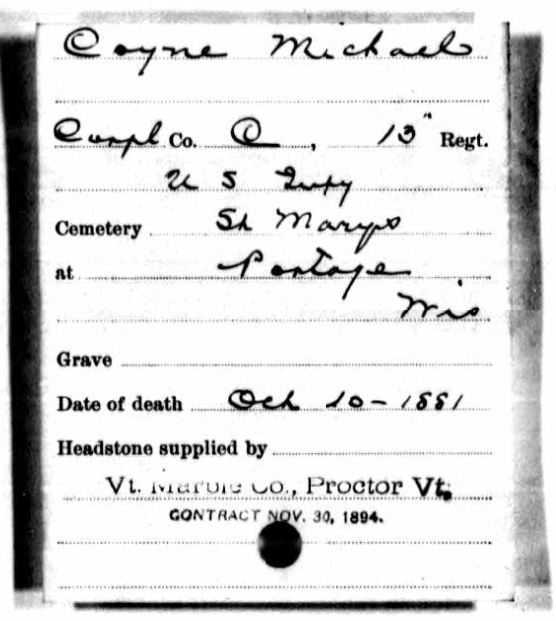 Coyne Michael
Corpl Co. C, 13" Regt.
U S Infty
Cemetery St Marys
at Portage
Wis
Grave
Date of death Oct 10-1881
Headstone supplied by
Vt. Marble Co., Proctor Vt.
CONTRACT NOV. 30, 1894.